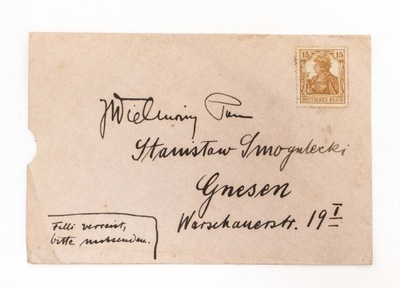 15 15
DEUTSCHES REICH
JWielmożny Pan
Stanisław Smogulecki
Gnesen
Warschauerstr. 19 I
Falls verreist,
bitte nachsenden.